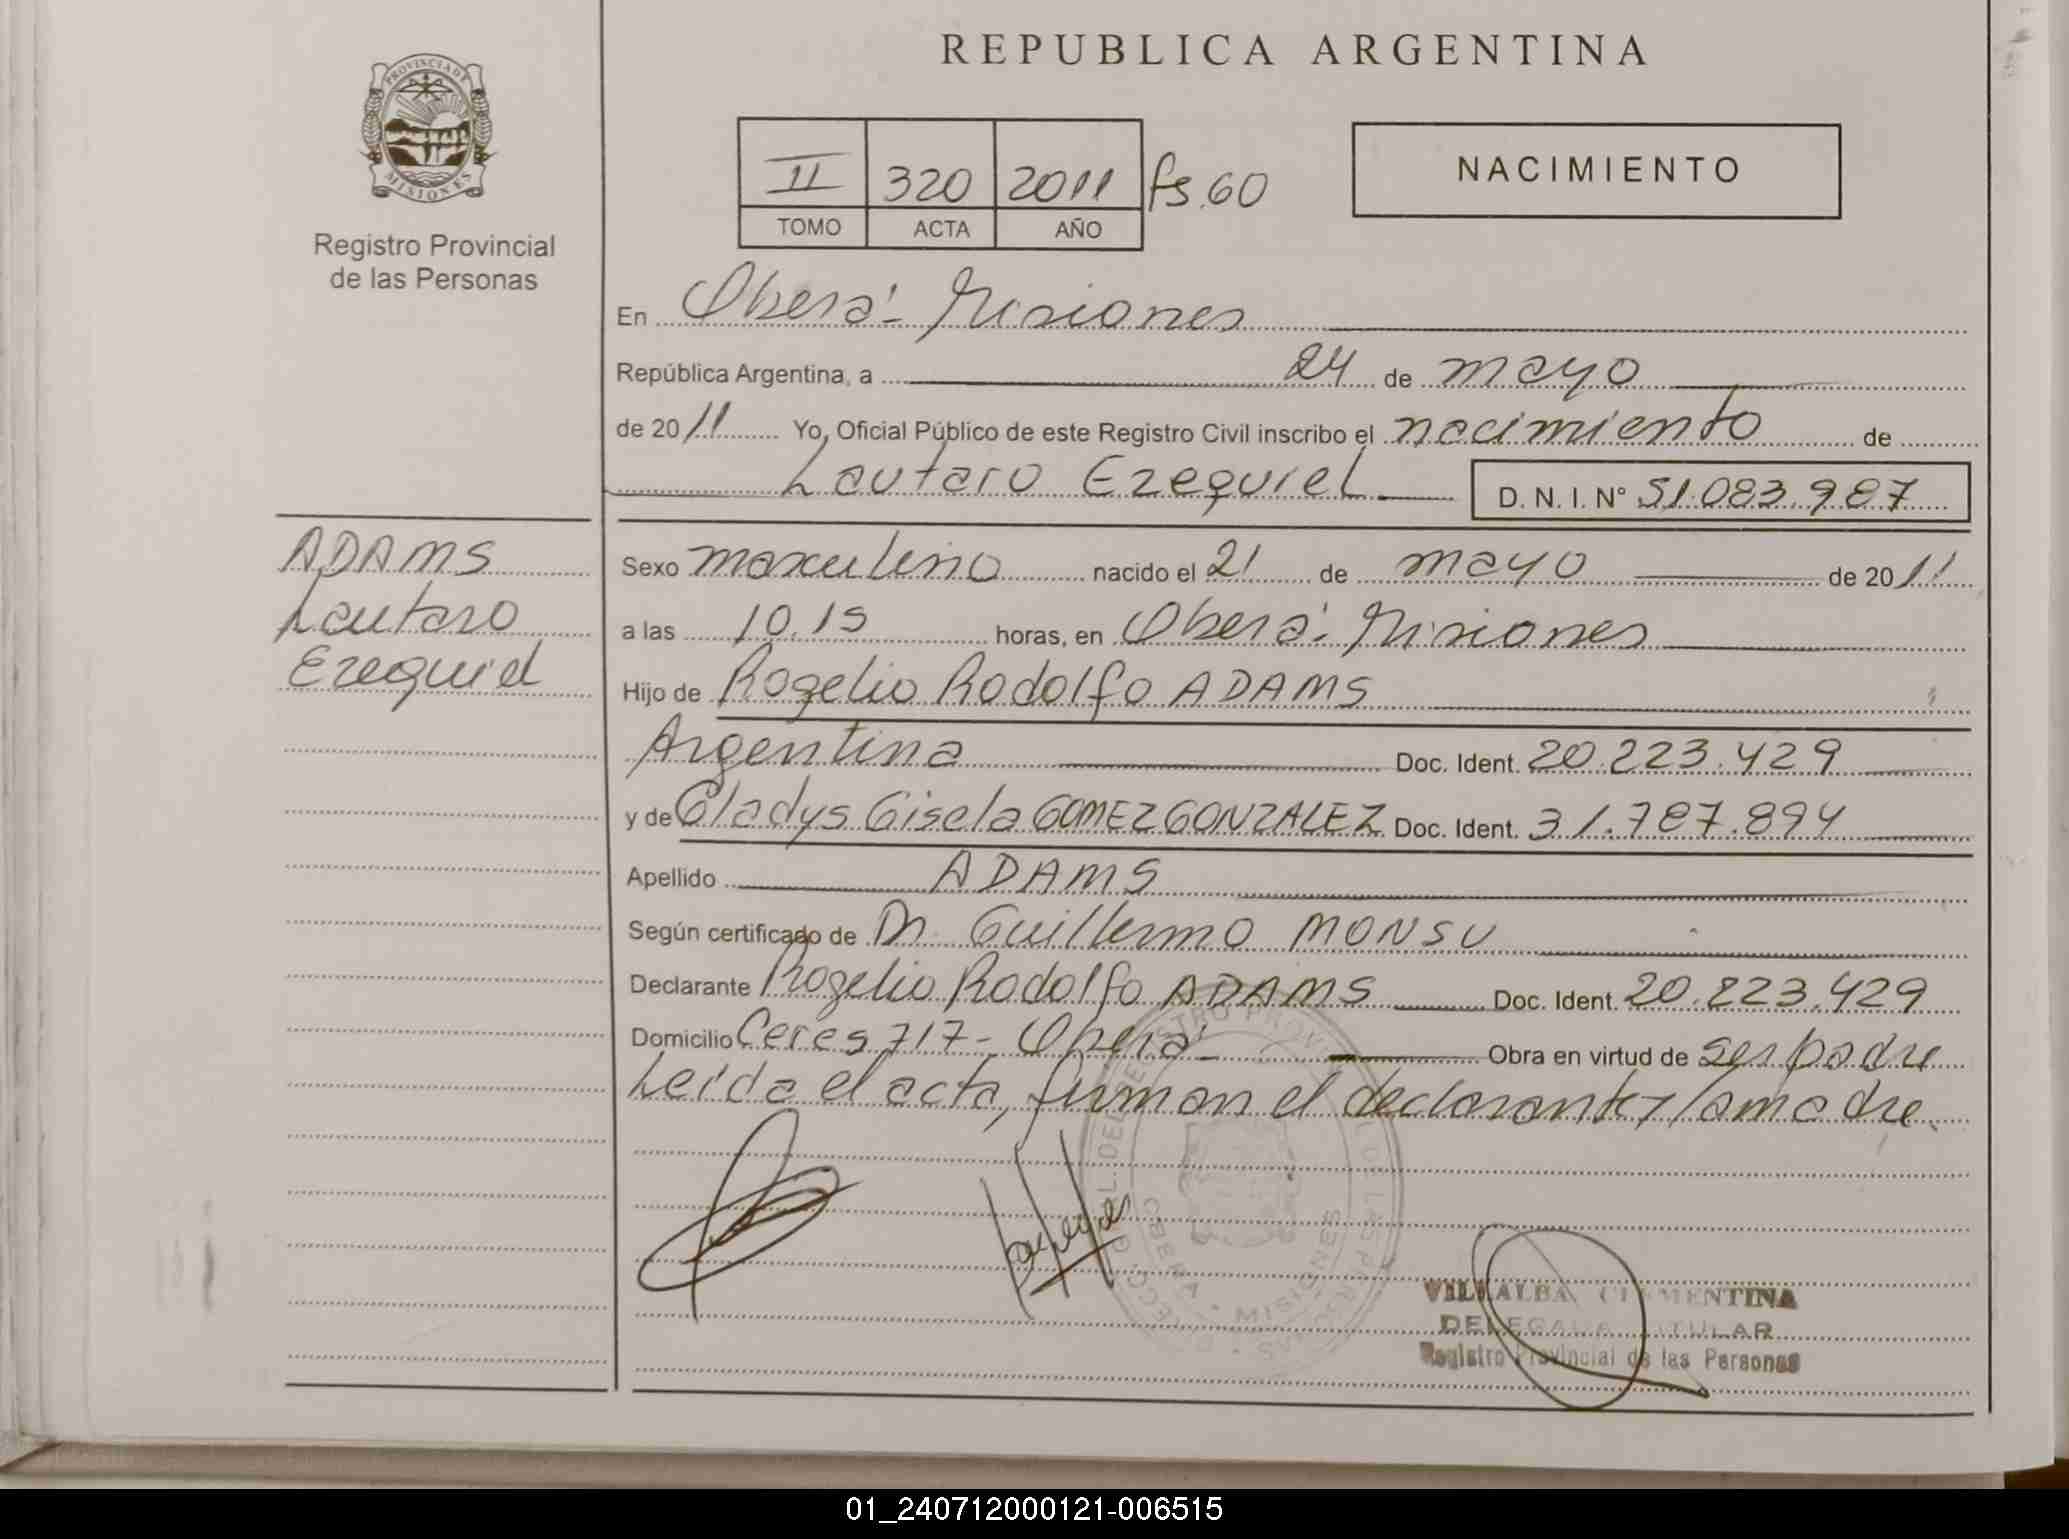 REPUBLICA ARGENTINA
PROVINCIA DE
MISIONES
Registro Provincial
de las Personas
II 320 2011 fs. 60
TOMO ACTA AÑO
NACIMIENTO
En Oberá - Misiones
República Argentina, a 24 de mayo
de 2011 Yo, Oficial Público de este Registro Civil inscribo el nacimiento de
Lautaro Ezequiel D. N. I. N° 51.083.987
ADAMS
Lautaro
Ezequiel
Sexo masculino nacido el 21 de mayo de 2011
a las 10.15 horas, en Oberá - Misiones
Hijo de Rogelio Rodolfo ADAMS
Argentina Doc. Ident. 20.223.429
y de Gladys Gisela GOMEZ GONZALEZ Doc. Ident. 31.787.894
Apellido ADAMS
Según certificado de Dr. Guillermo MONSU
Declarante Rogelio Rodolfo ADAMS Doc. Ident. 20.223.429
Domicilio Ceres 717 - Oberá - Obra en virtud de ser padre
Leída el acta, firman el declarante y la madre.
OBERA - MISIONES
VILLALBA CLEMENTINA
DELEGADA TITULAR
Registro Provincial de las Personas
01_240712000121-006515